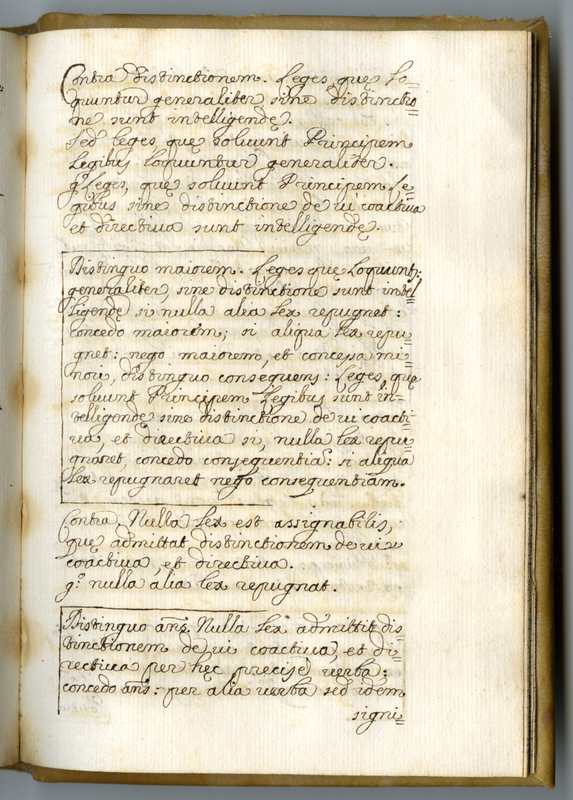 Contra distinctionem. Leges, quę lo=
quuntur generaliter, sine distinctio=
ne sunt intelligendę.
Sed leges, quę soluunt Principem
Legibus loquuntur generaliter.
g.º Leges, que soluunt Principem Le=
gibus sine distinctione de ui coactiua
et directiua sunt intelligendę.
Distinguo maiorem. Leges que loquunt.r
generaliter, sine distinctione sunt intel=
ligendę si nulla alia lex repugnet:
concedo maiorem; si aliqua lex repu=
gnet: nego maiorem, et concessa mi=
nori, distinguo consequens: Leges, quę
soluunt Principem Legibus sunt in=
telligendę sine distinctione de ui coacti=
ua, et directiua si, nulla lex repu=
gnaret, concedo consequentia: si aliqua
Lex repugnaret nego consequentiam.
Contra. Nulla Lex est assignabilis,
quę admittat distinctionem de ui
coactiua, et directiua.
g.º nulla alia lex repugnat.
Distinguo ans. Nulla Lex admittit dis=
tinctionem de ui coactiua, et di=
rectiua per hęc precisè uerba:
concedo ans: per alia uerba sed idem
signi=